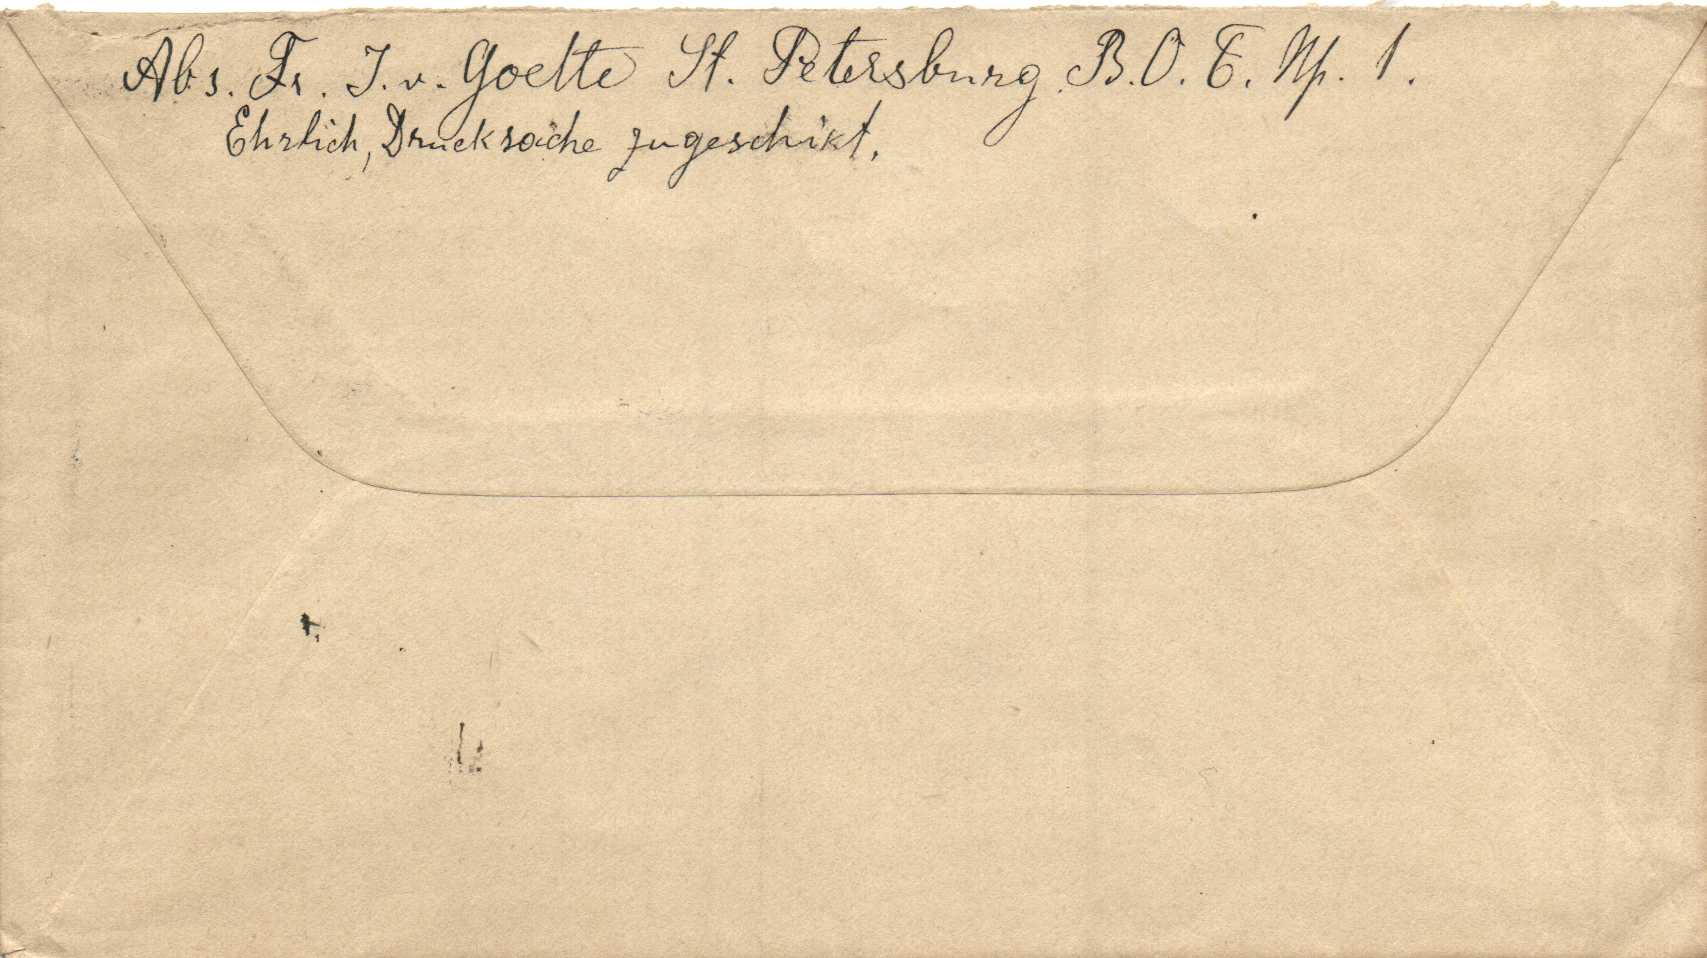 Abs. Fr. J. v. Goette St. Petersburg B. O. T. Np. 1.
Ehrlich, Drucksache zugeschikt.